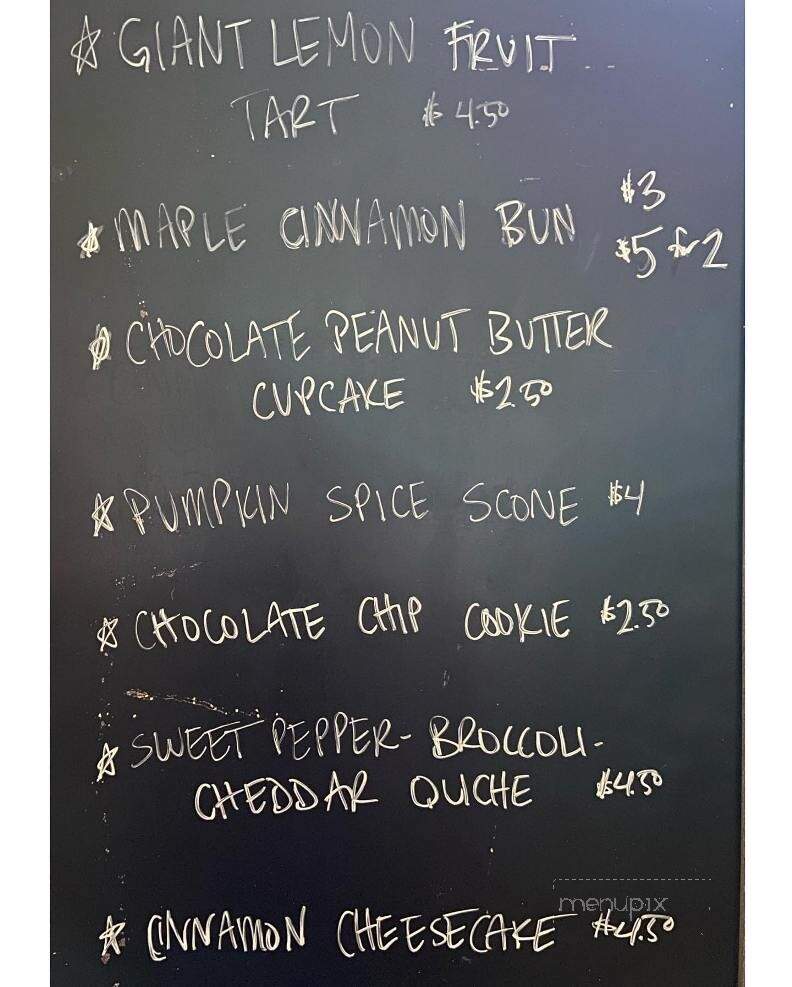 ☆ GIANT LEMON FRUIT
TART $4.50
☆ MAPLE CINNAMON BUN $3
$5 for 2
☆ CHOCOLATE PEANUT BUTTER
CUPCAKE $2.50
☆ PUMPKIN SPICE SCONE $4
☆ CHOCOLATE CHIP COOKIE $2.50
☆ SWEET PEPPER-BROCCOLI-
CHEDDAR QUICHE $4.50
menupix
☆ CINNAMON CHEESECAKE $4.50